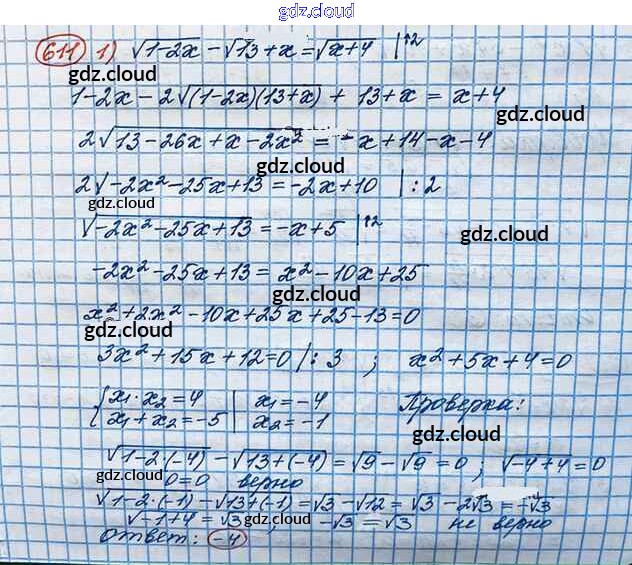 gdz.cloud
611 1) √1-2x - √13+x = √x+4 |↑2
gdz.cloud
1-2x-2√(1-2x)(13+x) + 13+x = x+4
gdz.cloud
2√13-26x+x-2x² = -x+14-x-4
gdz.cloud
2√-2x²-25x+13 = -2x+10 |:2
gdz.cloud
√-2x²-25x+13 = -x+5 |↑2
gdz.cloud
-2x²-25x+13 = x²-10x+25
gdz.cloud
x²+2x²-10x+25x+25-13=0
gdz.cloud
3x²+15x+12=0 |:3 ; x²+5x+4=0
gdz.cloud
{x₁·x₂=4 | x₁=-4 Проверка:
x₁+x₂=-5 | x₂=-1
gdz.cloud
gdz.cloud
√1-2·(-4) - √13+(-4) = √9-√9 = 0 ; √-4+4=0
gdz.cloud
0=0 верно
√1-2·(-1) - √13+(-1) = √3-√12 = √3-2√3 = -√3
√-1+4 = √3 ; -√3 = √3 не верно
gdz.cloud
Ответ: -4